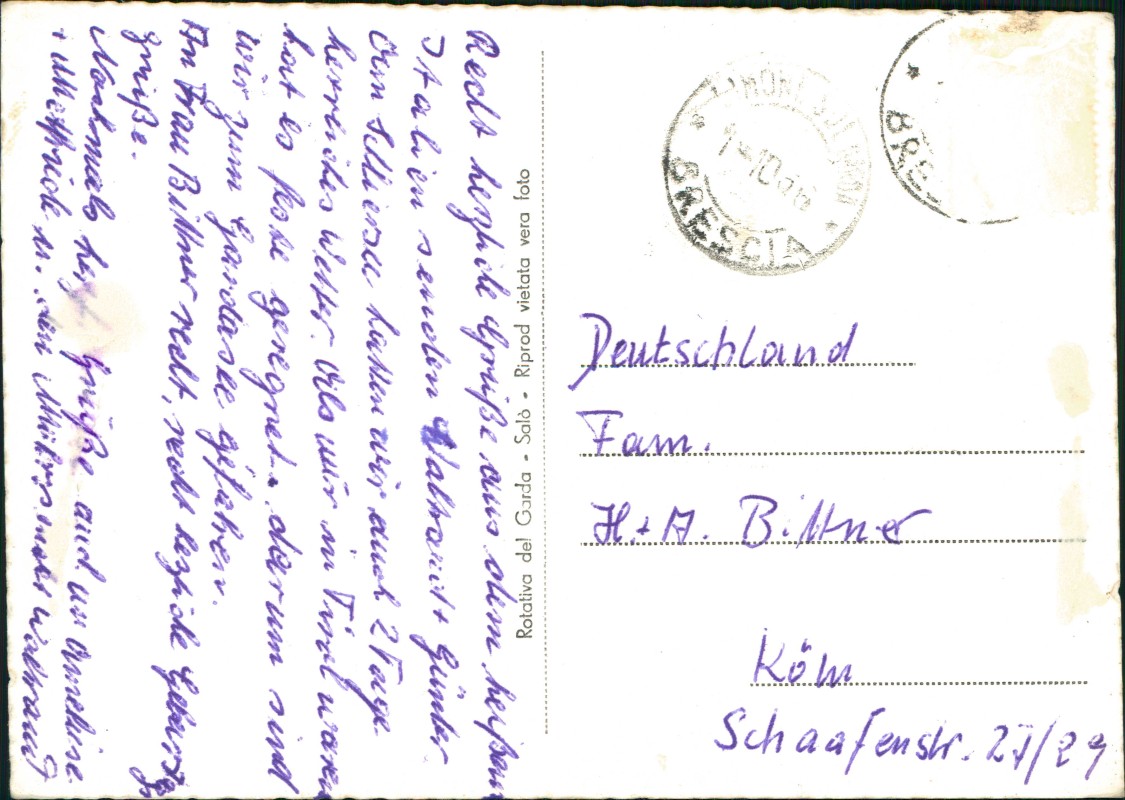 Recht herzliche Grüße aus dem heißen
Italien senden Waltraud + Günter
Am Schliersee hatten wir auch 2 Tage
herrliches Wetter. Als wir in Tirol waren
hat es stark geregnet u. darum sind
wir zum Gardasee gefahren.
An Frau Bittner recht, recht herzliche Geburtstags
grüße.
Nochmals herzl. Grüße auch an
+ u. den Waltraud
Rotativa del Garda - Salò - Riprod vietata vera foto
BRESCIA
BRE
Deutschland
Fam.
H. + A. Bittner
Köln
Schaafenstr. 27/29